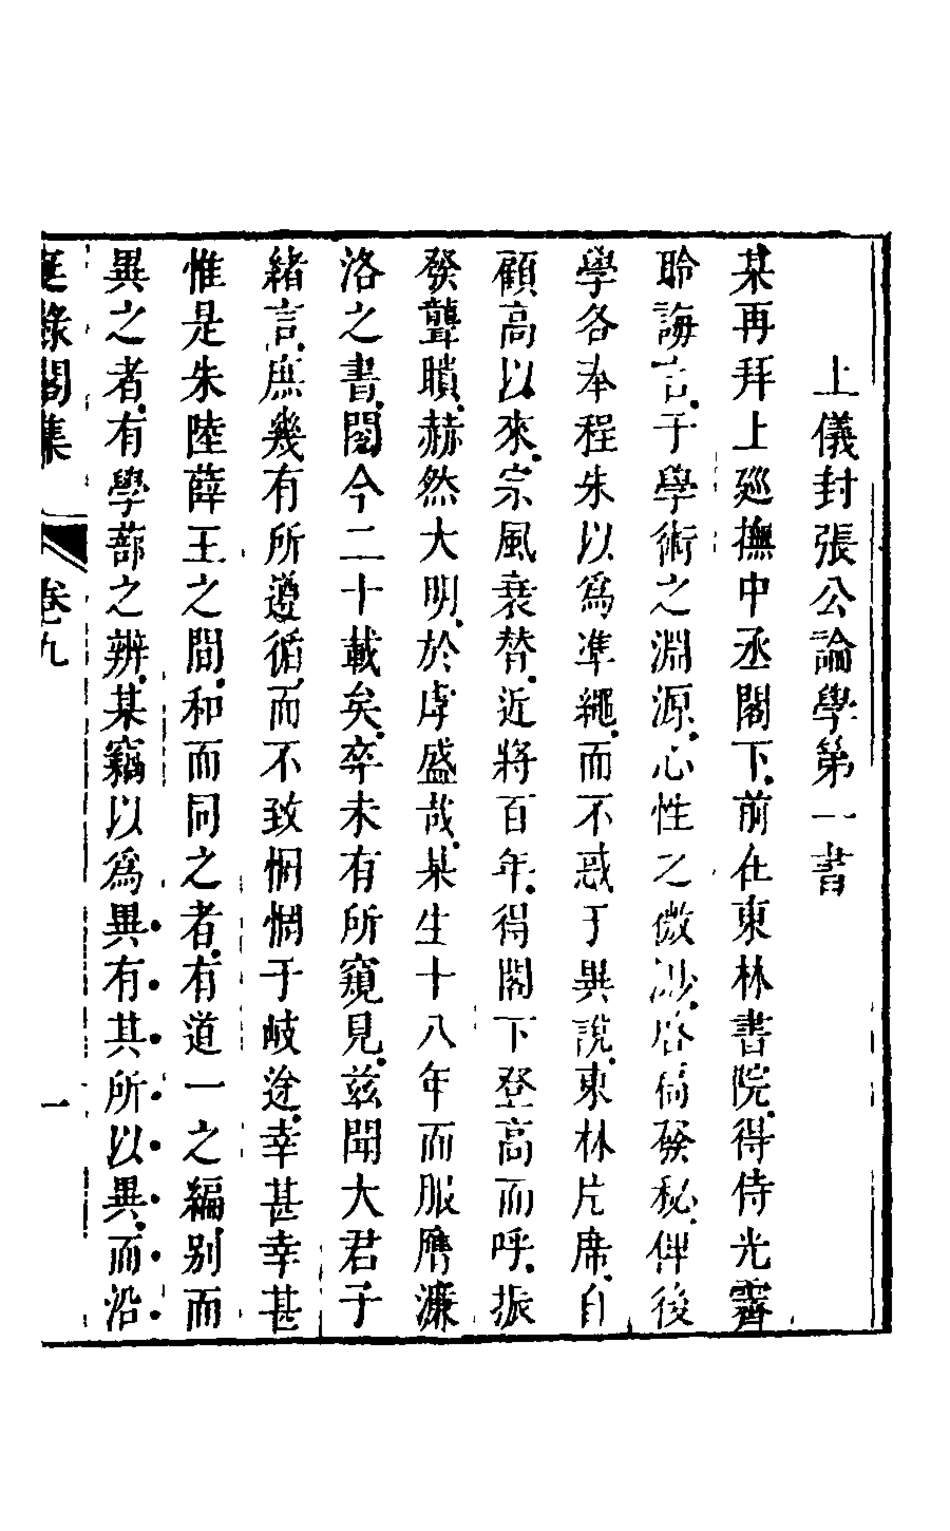 上儀封張公論學第一書
某再拜上廵撫中丞閣下前在東林書院得侍光霽
聆誨言于學術之淵源心性之微渺啓倘發秘俾後
學各奉程朱以爲準繩而不惑于異說東林片席自
顧高以來宗風衰替近將百年得閣下登高而呼振
發聾聵赫然大明於虖盛哉某生十八年而服膺濂
洛之書閱今二十載矣卒未有所窺見茲聞大君子
緒言庶幾有所遵循而不致惘惘于岐途幸甚幸甚
惟是朱陸薛王之間和而同之者有道一之編别而
異之者有學蔀之辨某竊以爲異有其所以異而沿
錄閣集 卷九 一